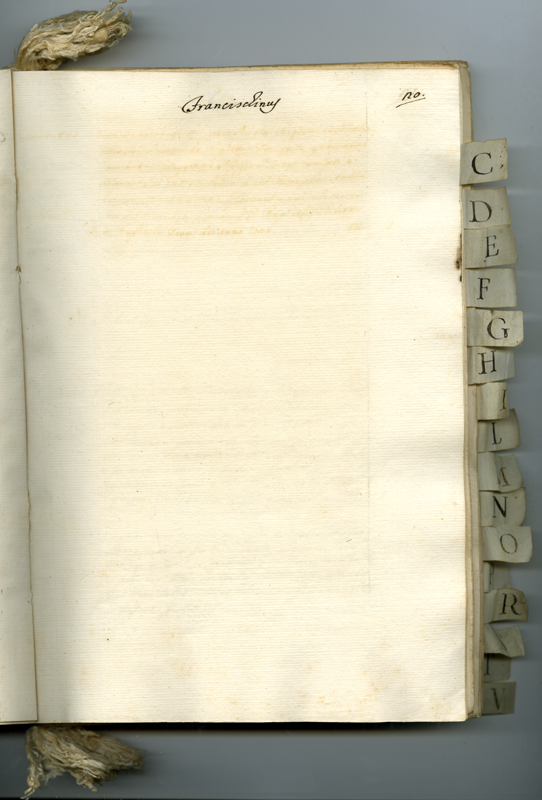 Franciscinus
no.
C
D
E
F
G
H
I
L
M
N
O
R
V